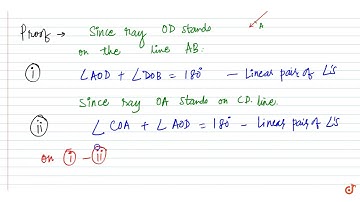 Proof → Since ray OD stands
on the line AB. A
(i) ∠AOD + ∠DOB = 180° - Linear pair of ∠'s
Since ray OA stands on CD. line.
(ii) ∠COA + ∠AOD = 180° - Linear pair of ∠'s
on (i) - (ii)